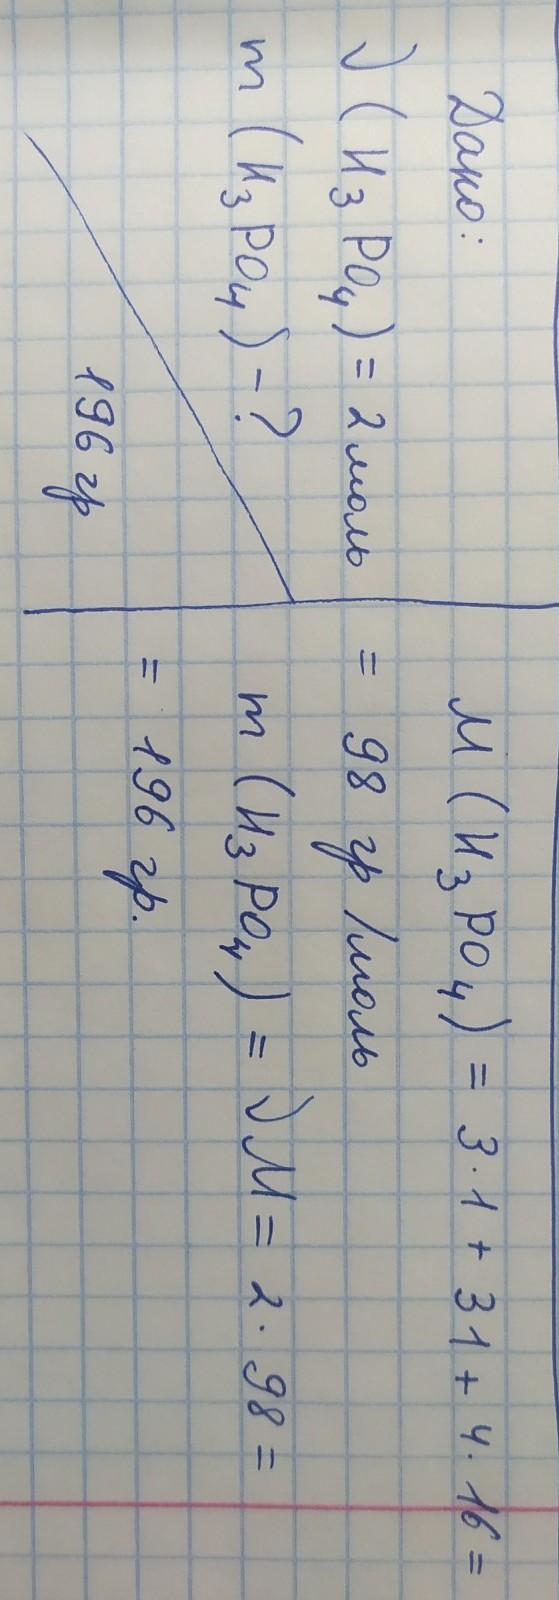 Дано:
ν (H₃PO₄) = 2 моль
m (H₃PO₄) - ?
196 гр
M (H₃PO₄) = 3·1 + 31 + 4·16 =
= 98 гр/моль
m (H₃PO₄) = νM = 2·98 =
= 196 гр.